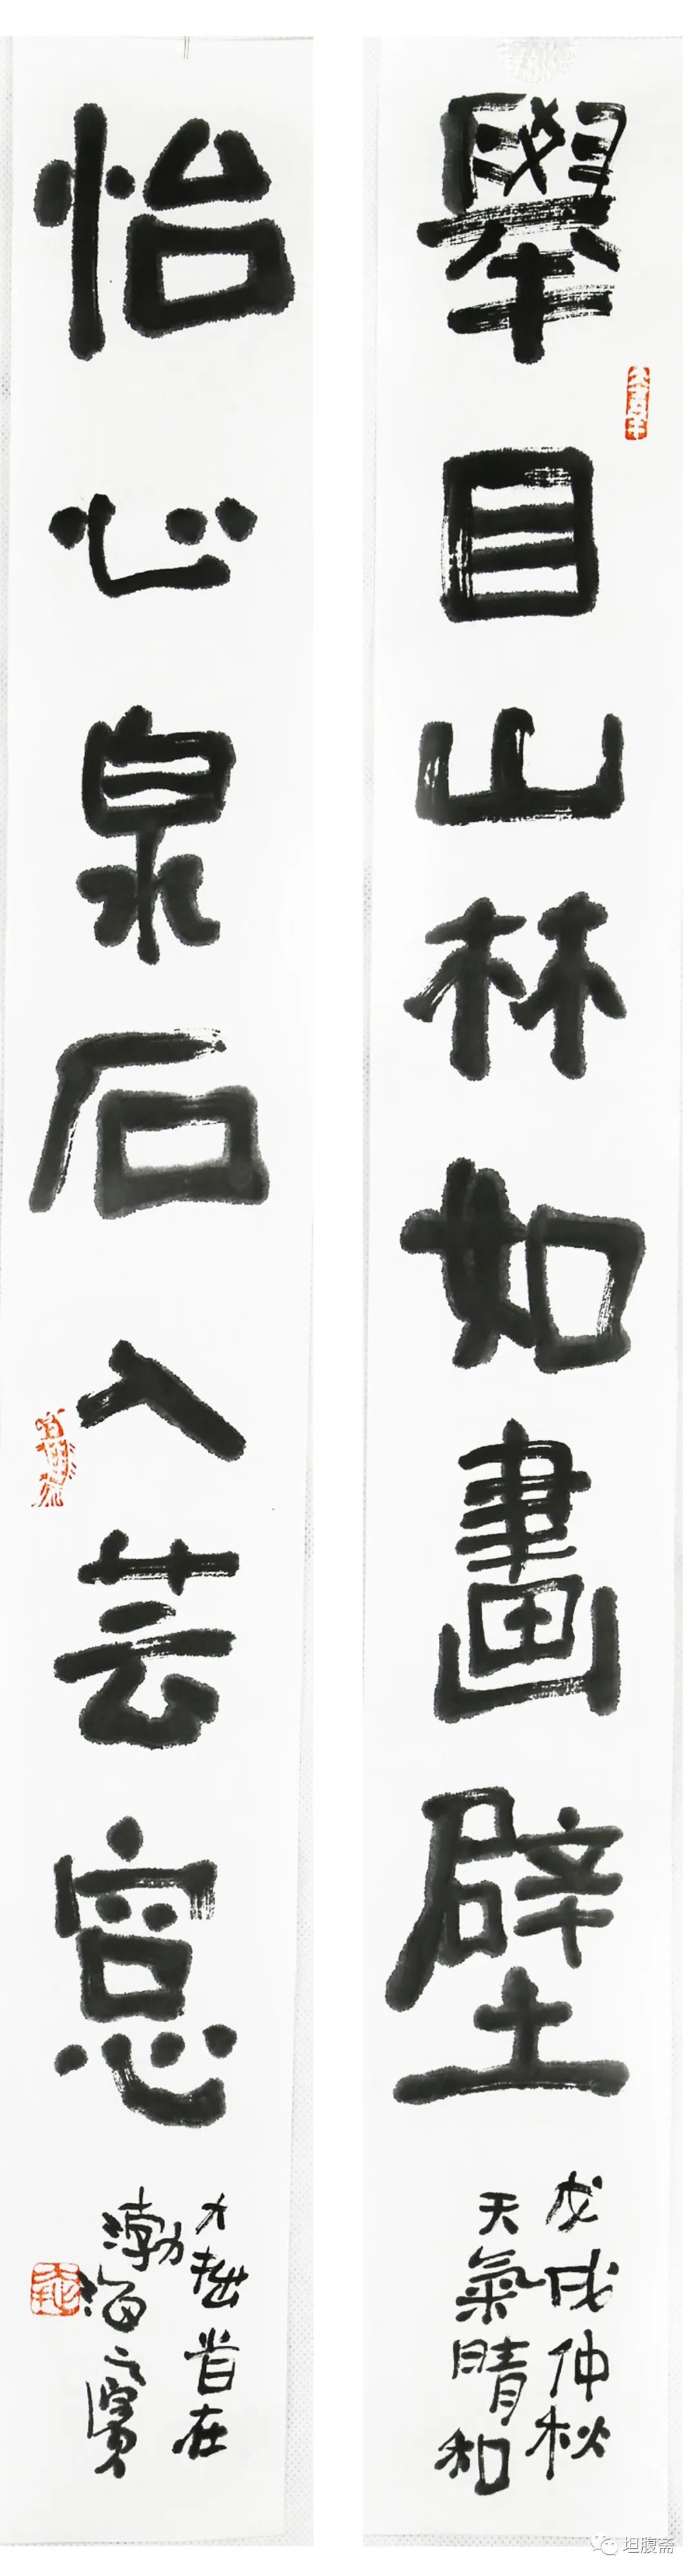 舉目山林如畫壁
戊戌仲秋
天氣晴和
怡心泉石入芸窓
大拙首在
渤海之濱
坦腹斋